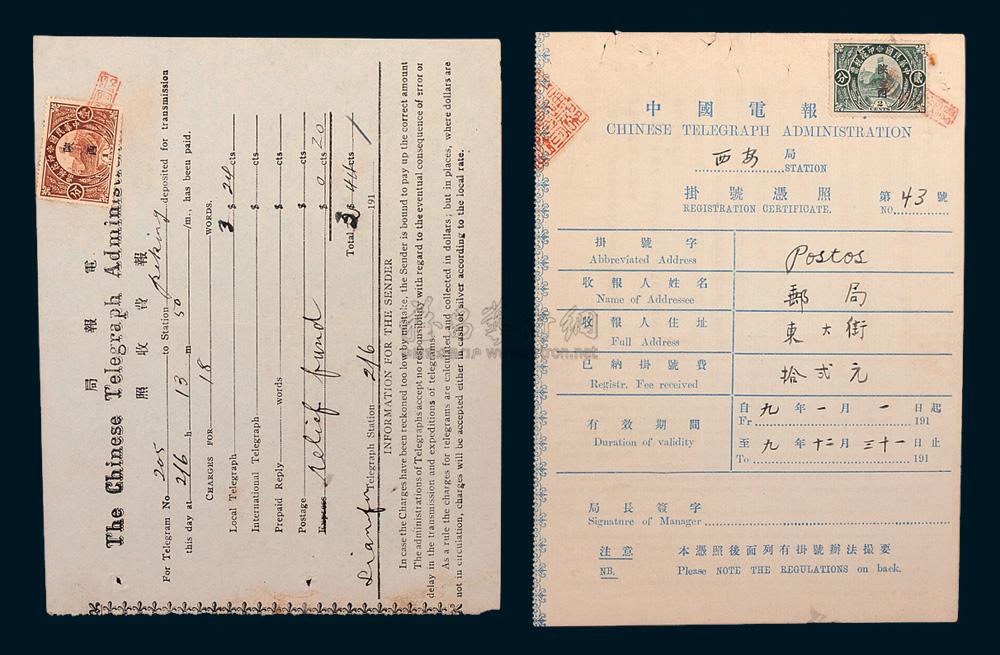 The Chinese Telegraph Administ
局 報 電
照 收 費 報
For Telegram No. 205 deposited for transmission
this day at 2/6 h 13 m 50 to Station Peking /m, has been paid.
CHARGES FOR 18 WORDS.
Local Telegraph 3 $ 24 cts
International Telegraph $ cts
Prepaid Reply words $ cts
Postage $ cts
Express Relief fund $ 0 20 cts
Total $ 44 cts
Sianfu Telegraph Station 2/6 191
INFORMATION FOR THE SENDER
In case the Charges have been reckoned too low by mistake, the Sender is bound to pay up the correct amount
The administrations of Telegraphs accept no responsibility with regard to the eventual consequence of error or
delay in the transmission and expeditions of telegrams.
As a rule the charges for telegrams are calculated and collected in dollars; but in places, where dollars are
not in circulation, charges will be accepted either in cash or silver according to the local rate.
陝 西
分
中華民國印花稅票
分 貳
2
CENTS
中 國 電 報
CHINESE TELEGRAPH ADMINISTRATION
西安 局
STATION
掛 號 憑 照 第 43 號
REGISTRATION CERTIFICATE. NO.
掛 號 字 Postos
Abbreviated Address
收 報 人 姓 名 郵 局
Name of Addressee
收 報 人 住 址 東 大 街
Full Address
已 納 掛 號 費 拾 弍 元
Registr. Fee received
自 九 年 一 月 一 日 起
Fr 191
有 效 期 間
Duration of validity
至 九 年 十二 月 三十一 日 止
To 191
局 長 簽 字
Signature of Manager
注 意 本 憑 照 後 面 列 有 掛 號 辦 法 撮 要
NB. Please NOTE THE REGULATIONS on back.